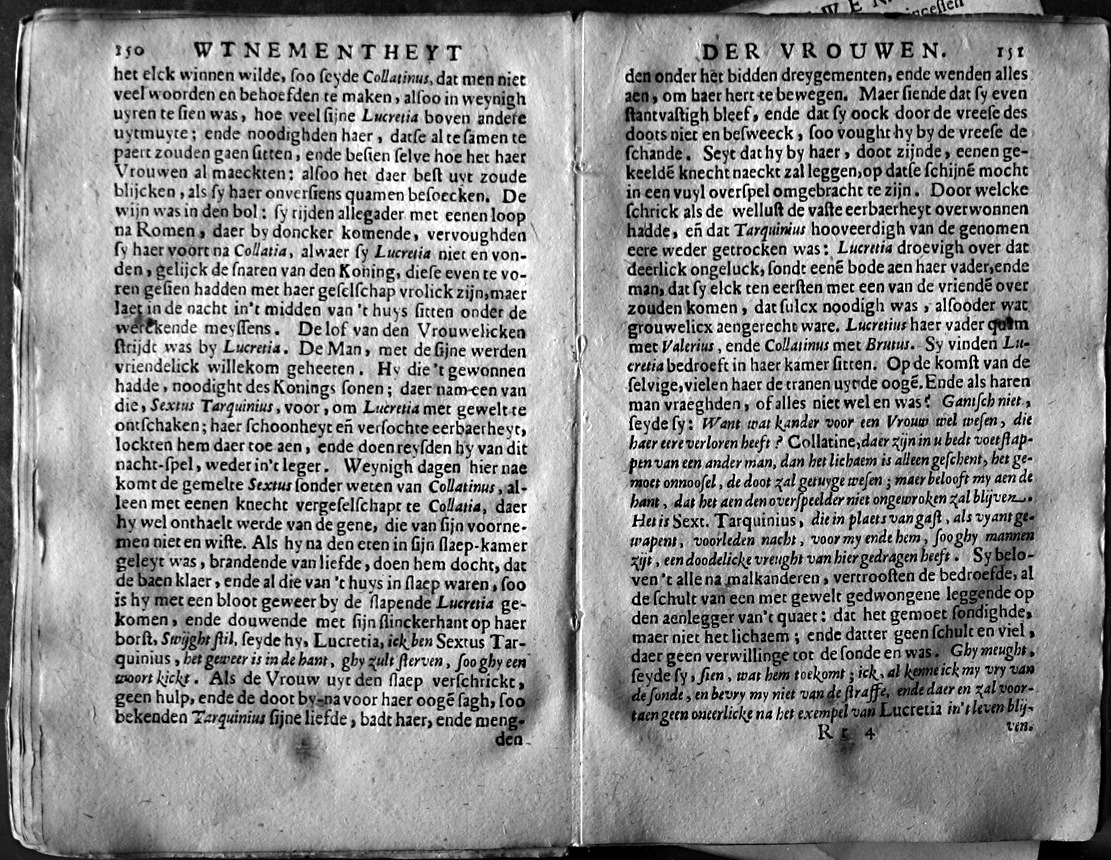 WE N
incesten
150 WTNEMENTHEYT
het elck winnen wilde, ſoo ſeyde Collatinus, dat men niet
veel woorden en behoefden te maken, alſoo in weynigh
uyren te ſien was, hoe veel ſijne Lucretia boven andere
uytmuyte; ende noodighden haer, datſe al te ſamen te
paert zouden gaen ſitten, ende beſien ſelve hoe het haer
Vrouwen al maeckten: alſoo het daer beſt uyt zoude
blijcken, als ſy haer onverſiens quamen beſoecken. De
wijn was in den bol: ſy rijden allegader met eenen loop
na Romen, daer by doncker komende, vervoughden
ſy haer voort na Collatia, alwaer ſy Lucretia niet en von-
den, gelijck de ſnaren van den Koning, dieſe even te vo-
ren geſien hadden met haer geſelſchap vrolick zijn, maer
laet in de nacht in't midden van 't huys ſitten onder de
werckende meyſſens. De lof van den Vrouwelicken
ſtrijdt was by Lucretia. De Man, met de ſijne werden
vriendelick willekom geheeten. Hy die 't gewonnen
hadde, noodight des Konings ſonen; daer nam een van
die, Sextus Tarquinius, voor, om Lucretia met gewelt te
ontſchaken; haer ſchoonheyt eñ verſochte eerbaerheyt,
lockten hem daer toe aen, ende doen reyſden hy van dit
nacht-ſpel, weder in't leger. Weynigh dagen hier nae
komt de gemelte Sextus ſonder weten van Collatinus, al-
leen met eenen knecht vergeſelſchapt te Collatia, daer
hy wel onthaelt werde van de gene, die van ſijn voorne-
men niet en wiſte. Als hy na den eten in ſijn ſlaep-kamer
geleyt was, brandende van liefde, doen hem docht, dat
de baen klaer, ende al die van 't huys in ſlaep waren, ſoo
is hy met een bloot geweer by de ſlapende Lucretia ge-
komen, ende douwende met ſijn ſlinckerhant op haer
borſt, Swijght ſtil, ſeyde hy, Lucretia, ick ben Sextus Tar-
quinius, het geweer is in de hant, ghy zult ſterven, ſoo ghy een
woort kickt. Als de Vrouw uyt den ſlaep verſchrickt,
geen hulp, ende de doot by-na voor haer oogẽ ſagh, ſoo
bekenden Tarquinius ſijne liefde, badt haer, ende meng-
den
DER VROUWEN. 151
den onder het bidden dreygementen, ende wenden alles
aen, om haer hert te bewegen. Maer ſiende dat ſy even
ſtantvaſtigh bleef, ende dat ſy oock door de vreeſe des
doots niet en beſweeck, ſoo vought hy by de vreeſe de
ſchande. Seyt dat hy by haer, doot zijnde, eenen ge-
keeldẽ knecht naeckt zal leggen, op datſe ſchijnẽ mocht
in een vuyl overſpel omgebracht te zijn. Door welcke
ſchrick als de welluſt de vaſte eerbaerheyt overwonnen
hadde, eñ dat Tarquinius hooveerdigh van de genomen
eere weder getrocken was: Lucretia droevigh over dat
deerlick ongeluck, ſondt eenẽ bode aen haer vader, ende
man, dat ſy elck ten eerſten met een van de vriendẽ over
zouden komen, dat ſulcx noodigh was, alſooder wat
grouwelicx aengerecht ware. Lucretius haer vader quam
met Valerius, ende Collatinus met Brutus. Sy vinden Lu-
cretia bedroeft in haer kamer ſitten. Op de komſt van de
ſelvige, vielen haer de tranen uyt de oogẽ. Ende als haren
man vraeghden, of alles niet wel en was? Gantſch niet,
ſeyde ſy: Want wat kander voor een Vrouw wel weſen, die
haer eere verloren heeft? Collatine, daer zijn in u bedt voetſtap-
pen van een ander man, dan het lichaem is alleen geſchent, het ge-
moet onnooſel, de doot zal getuyge weſen; maer belooft my aen de
hant, dat het aen den overſpeelder niet ongewroken zal blijven.
Het is Sext. Tarquinius, die in plaets van gaſt, als vyant ge-
wapent, voorleden nacht, voor my ende hem, ſoo ghy mannen
zijt, een doodelicke vreught van hier gedragen heeft. Sy belo-
ven 't alle na malkanderen, vertrooſten de bedroefde, al
de ſchult van een met gewelt gedwongene leggende op
den aenlegger van 't quaet: dat het gemoet ſondighde,
maer niet het lichaem; ende datter geen ſchult en viel,
daer geen verwillinge tot de ſonde en was. Ghy meught,
ſeyde ſy, ſien, wat hem toekomt; ick, al kenne ick my vry van
de ſonde, en bevry my niet van de ſtraffe, ende daer en zal voor-
taen geen oneerlicke na het exempel van Lucretia in't leven blij-
Rr 4 ven.